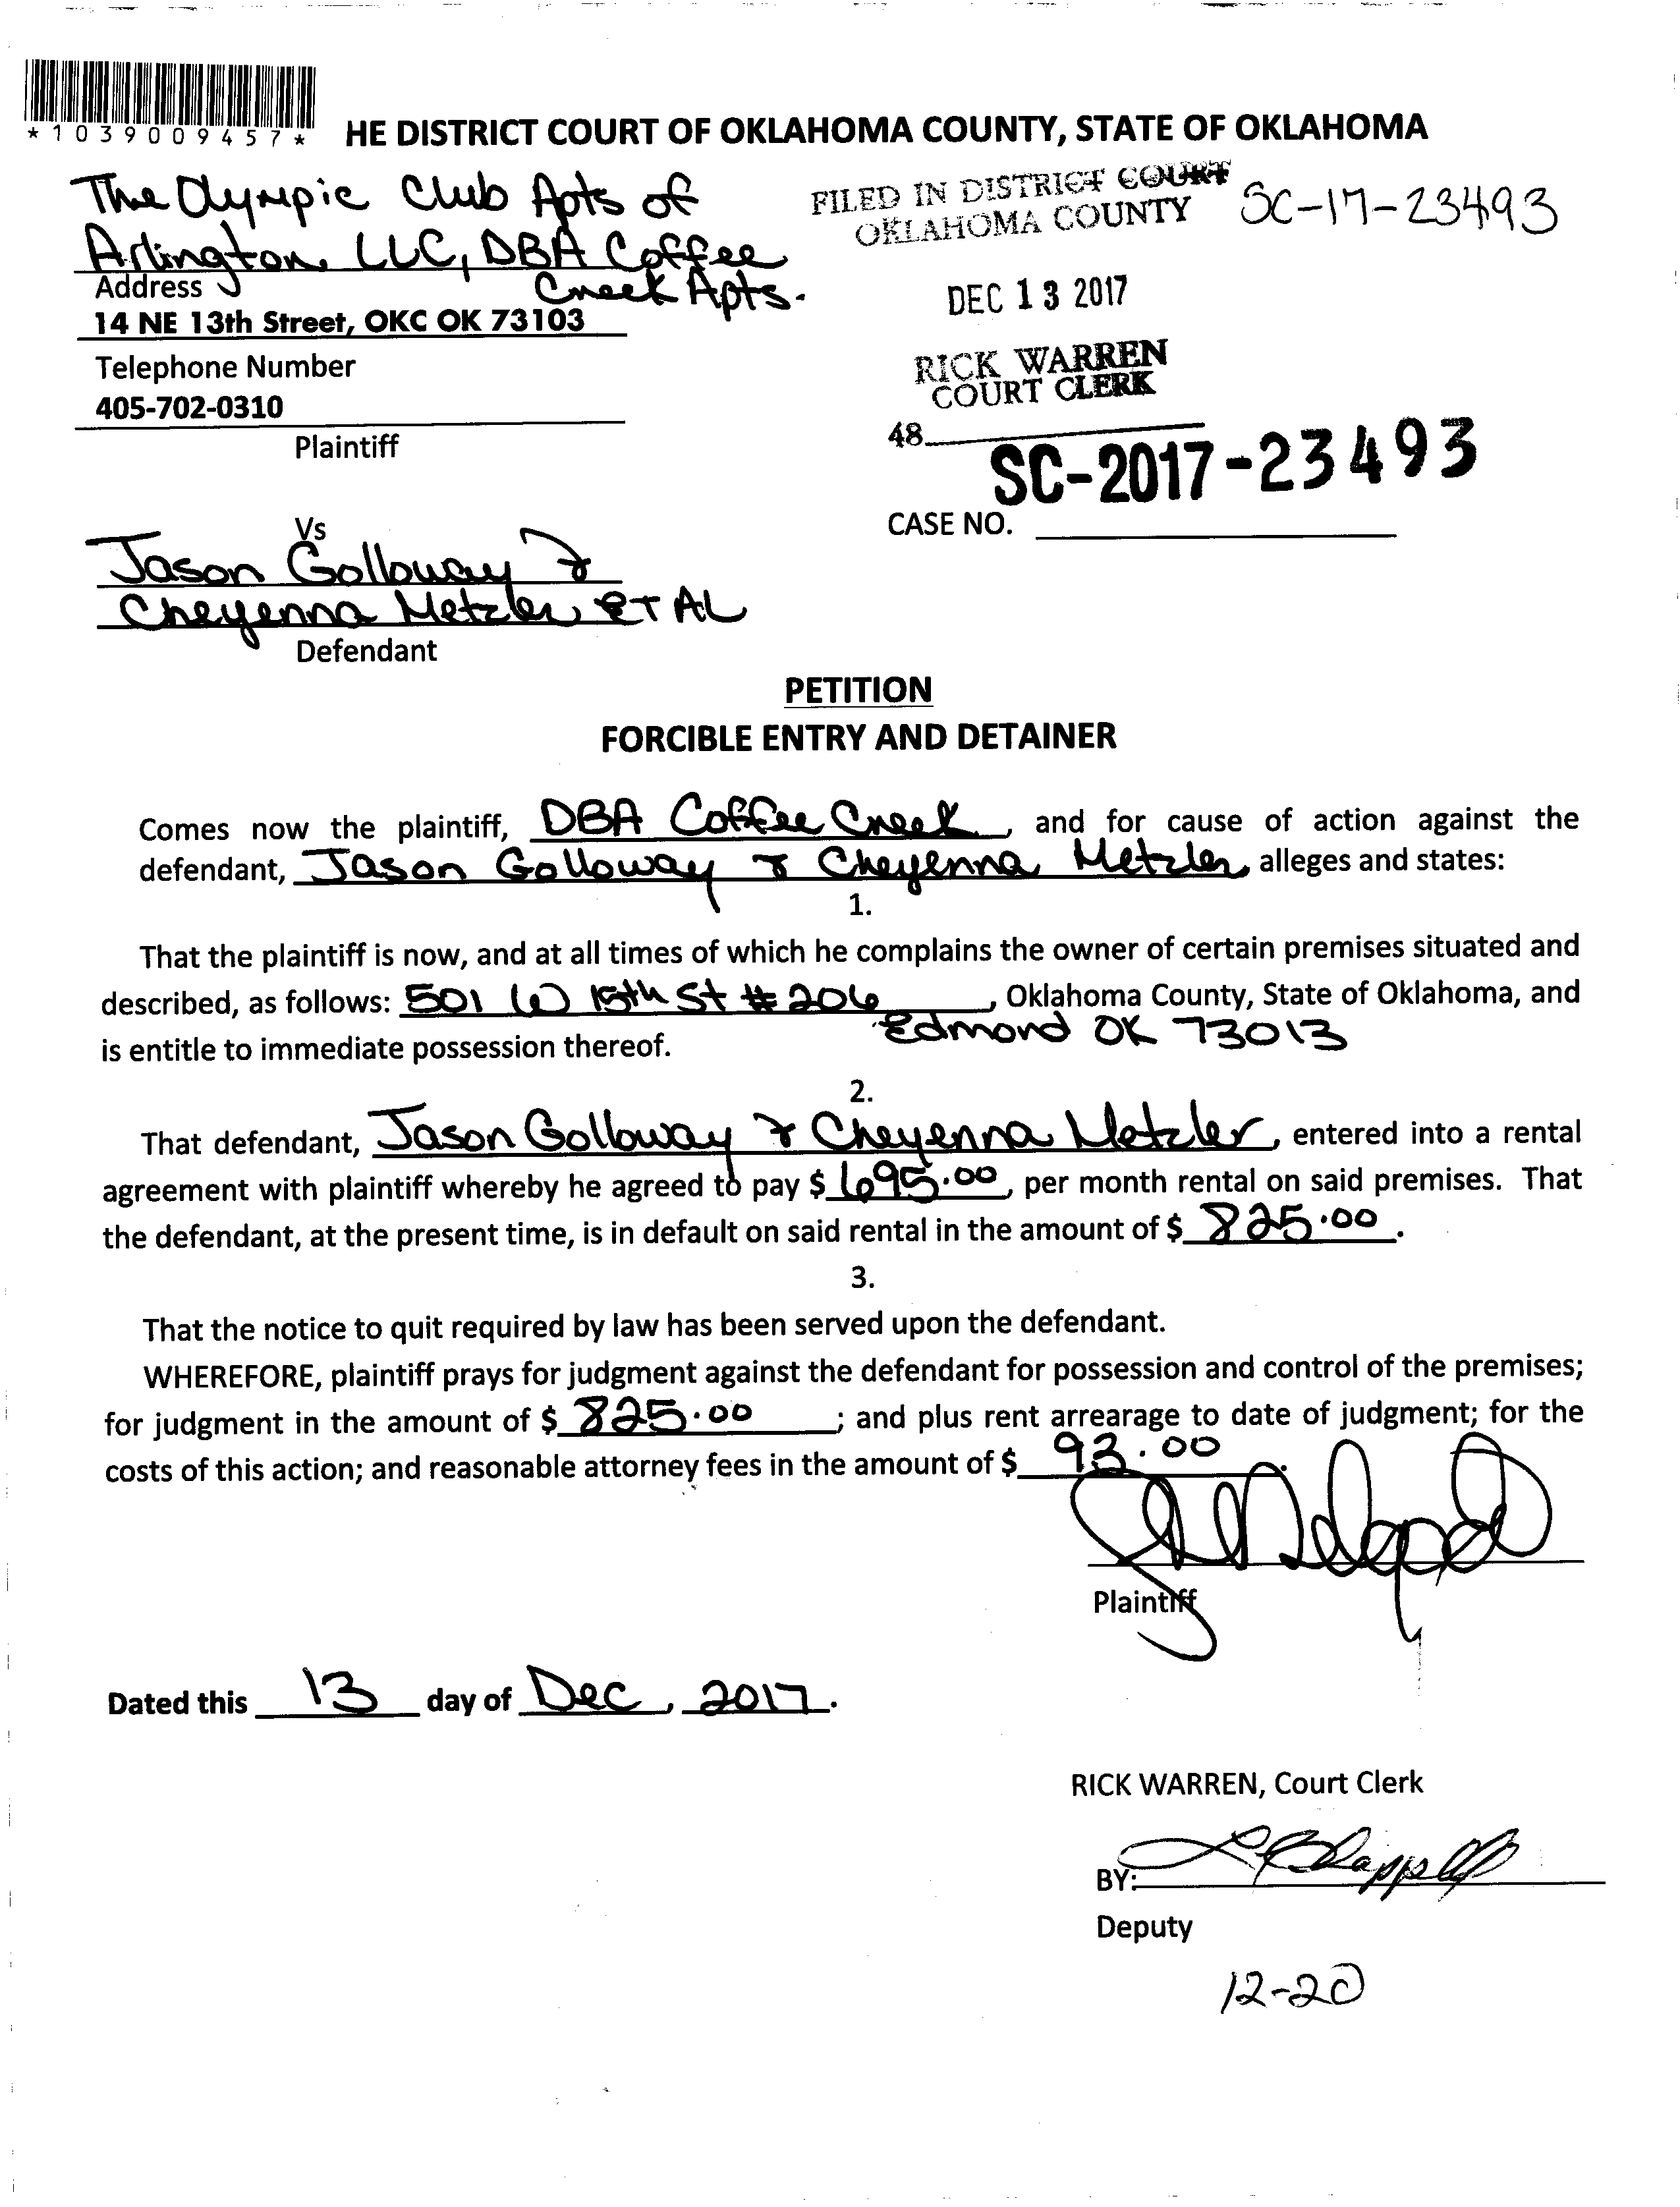 *1039009457*
HE DISTRICT COURT OF OKLAHOMA COUNTY, STATE OF OKLAHOMA
The Olympic Club Apts of
Arlington, LLC, DBA Coffee
Creek Apts.
Address
14 NE 13th Street, OKC OK 73103
Telephone Number
405-702-0310
Plaintiff
FILED IN DISTRICT COURT
OKLAHOMA COUNTY
SC-17-23493
DEC 13 2017
RICK WARREN
COURT CLERK
48
SC-2017-23493
CASE NO.
Vs
Jason Golloway &
Cheyenna Metzler ET AL
Defendant
PETITION
FORCIBLE ENTRY AND DETAINER
Comes now the plaintiff, DBA Coffee Creek, and for cause of action against the
defendant, Jason Golloway & Cheyenna Metzler, alleges and states:
1.
That the plaintiff is now, and at all times of which he complains the owner of certain premises situated and
described, as follows: 501 W 15th St #206, Oklahoma County, State of Oklahoma, and
Edmond OK 73013
is entitle to immediate possession thereof.
2.
That defendant, Jason Golloway & Cheyenna Metzler, entered into a rental
agreement with plaintiff whereby he agreed to pay $ 695.00, per month rental on said premises. That
the defendant, at the present time, is in default on said rental in the amount of $ 825.00.
3.
That the notice to quit required by law has been served upon the defendant.
WHEREFORE, plaintiff prays for judgment against the defendant for possession and control of the premises;
for judgment in the amount of $ 825.00; and plus rent arrearage to date of judgment; for the
costs of this action; and reasonable attorney fees in the amount of $ 93.00.
Plaintiff
Dated this 13 day of Dec, 2017.
RICK WARREN, Court Clerk
BY:
Deputy
12-20